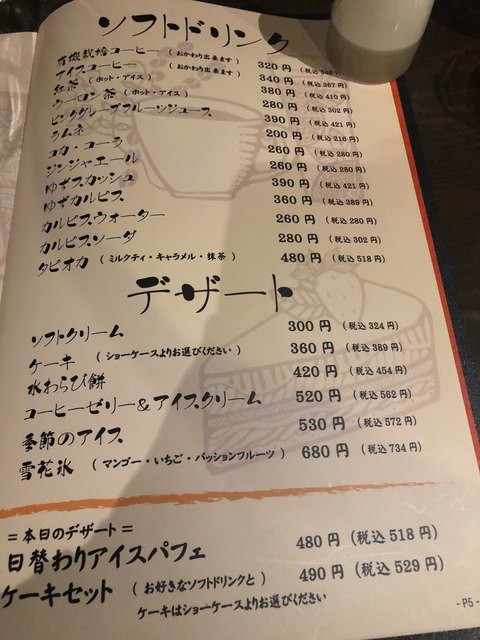 ソフトドリンク
有機栽培コーヒー (おかわり出来ます) 320円 (税込 346円)
アイスコーヒー (おかわり出来ます) 340円 (税込 367円)
紅茶 (ホット・アイス) 380円 (税込 410円)
ウーロン茶 (ホット・アイス) 280円 (税込 302円)
ピンクグレープフルーツジュース 390円 (税込 421円)
ラムネ 200円 (税込 216円)
コカ・コーラ 260円 (税込 280円)
ジンジャエール 260円 (税込 280円)
ゆずスカッシュ 390円 (税込 421円)
ゆずカルピス 360円 (税込 389円)
カルピスウォーター 260円 (税込 280円)
カルピスソーダ 280円 (税込 302円)
タピオカ (ミルクティ・キャラメル・抹茶) 480円 (税込 518円)
デザート
ソフトクリーム 300円 (税込 324円)
ケーキ (ショーケースよりお選びください) 360円 (税込 389円)
水わらび餅 420円 (税込 454円)
コーヒーゼリー&アイスクリーム 520円 (税込 562円)
季節のアイス 530円 (税込 572円)
雪花氷 (マンゴー・いちご・パッションフルーツ) 680円 (税込 734円)
=本日のデザート=
日替わりアイスパフェ 480円 (税込 518円)
ケーキセット (お好きなソフトドリンクと) 490円 (税込 529円)
ケーキはショーケースよりお選びください
-P5-